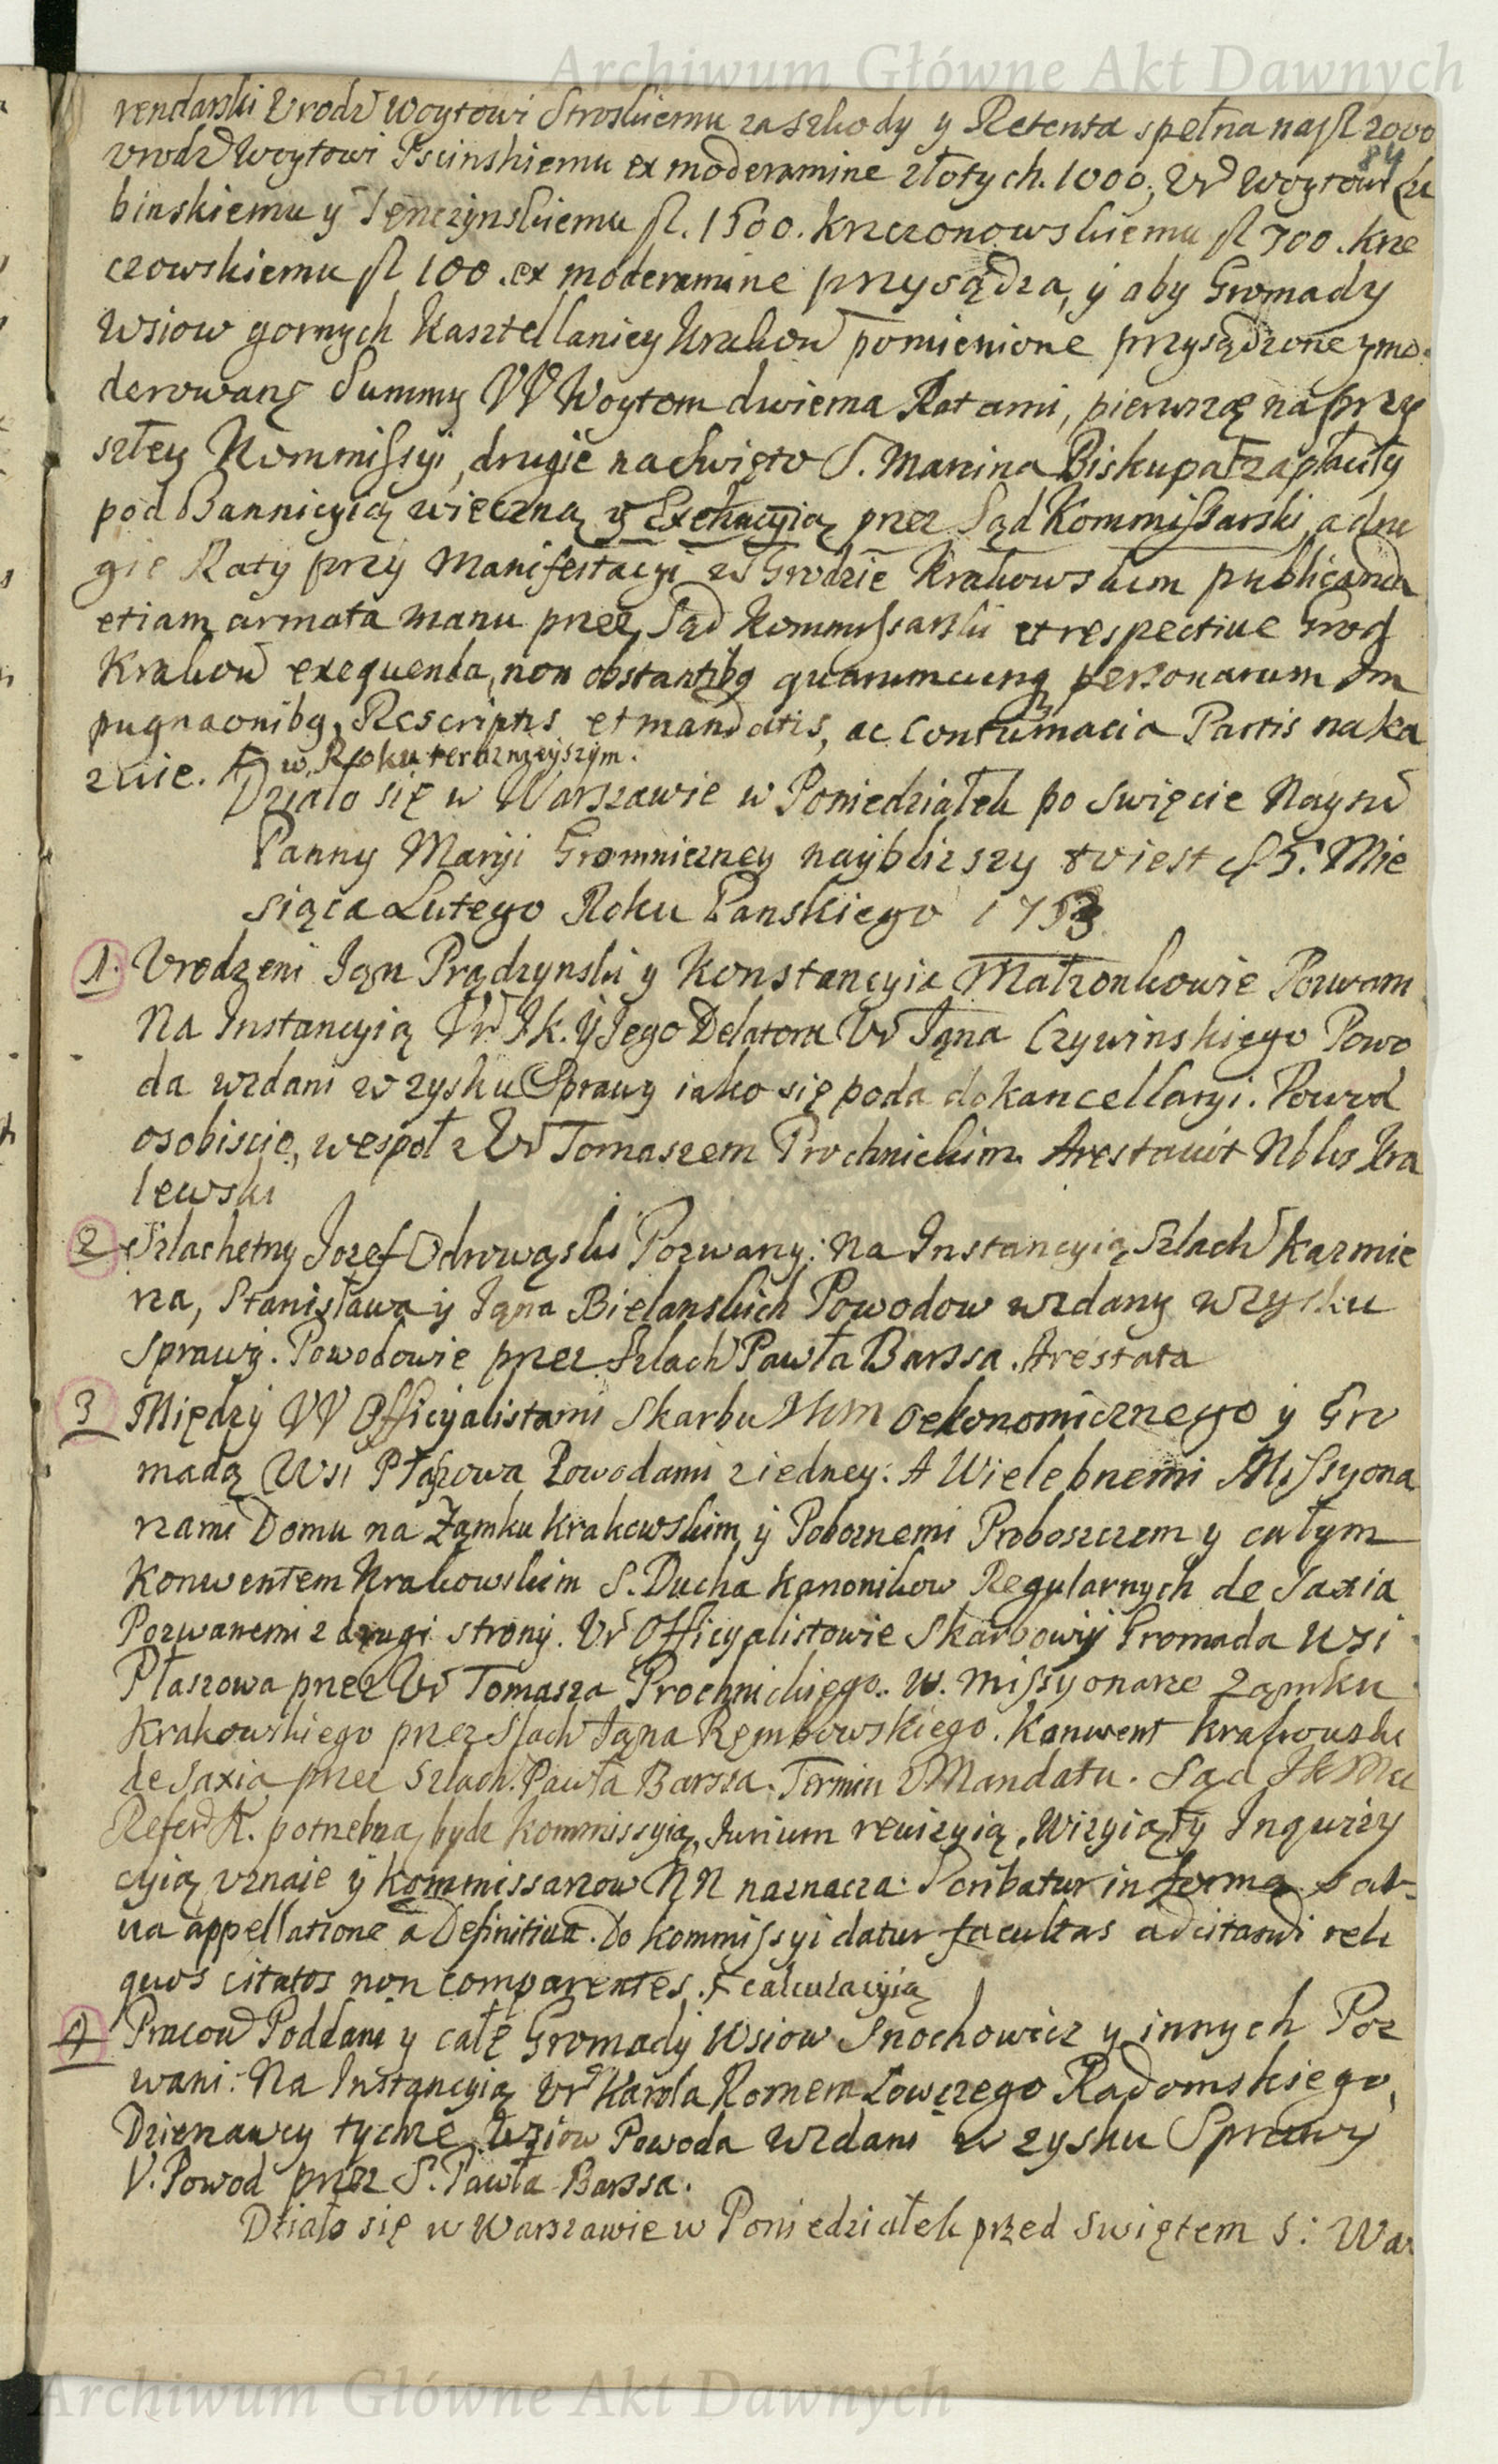 Archiwum Główne Akt Dawnych
rendarski Vrodz Woytowi Stroskiemu za szkody y Retenta spełna na fl 2000
84
vrodz Woytowi Pscinskiemu ex moderamine złotych. 1000, Ur Woytowi Lu
binskiemu y Tenczynskiemu fl. 1500. Krzczonowskiemu fl 700. Krze
czowskiemu fl 100. ex moderamine przysądza, y aby Gromady
Wsiow gornych Kasztellaniey Krakow pomienione przysądzone zmo
derowaną Summę UU Woytom dwiema Ratami, pierwszą na przy
szłey Kommissyi, drugie na Swięto S. Marcina Biskupa zapłaciły
pod Bannicyią wieczną y Exekucyią przez Sąd Kommissarski, a dru
gie Raty przy Manifestacyi w Grodzie Krakowskim publicanda
etiam armata manu przez Sąd Kommissarski et respective Grod
Krakow exequenda, non obstantibq quarumcunq personarum Im
pugnaonibq, Rescriptis et mandatis, ac Contumacia Partis naka
zuie. Ŧ w Roku teraznieyszym.
Działo się w Warszawie w Poniedziałek po Swięcie Nayśw
Panny Maryi Gromniczney naybliższy to iest d 5. Mie
siąca Lutego Roku Panskiego 1753
1. Vrodzeni Jan Prądzynski y Konstancyia Małzonkowie Pozwani
Na Instancyią Ur I.K. y Jego Delatora Ur Jana Czywinskiego Powo
da wzdani w zysku Sprawy iako się poda do kancellaryi. Powod
osobiscie, wespoł z Ur Tomaszem Prochnickim. Arestawit Nblis Kra
lewski
2 Szlachetny Jozef Odrowąski Pozwany: Na Instancyią Szlach Kazmie
rza, Stanisława y Jana Bielanskich Powodow wzdany w zysku
Sprawy. Powodowie przez Szlach Pawła Barssa. Arestata
3 Między UU Officyalistami Skarbu JKM Oekonomicznego y Gro
madą Wsi Płaszowa Powodami z iedney: A Wielebnemi Missyona
rzami Domu na Zamku Krakowskim y Poboznemi Proboszczem y całym
Konwentem Krakowskim S. Ducha Kanonikow Regularnych de Saxia
Pozwanemi z drugi strony. Ur Officyalistowie Skarbowi y Gromada Wsi
Płaszowa przez Ur Tomasza Prochnickiego. W. Missyonarze Zamku
Krakowskiego przez Slach Jana Rembowskiego. Konwent Krakowski
de Saxia przez Szlach. Pawła Barssa. Termin z Mandatu. Sąd JKMci
Referd Ŧ. potrzebną bydz Kommissyią, Iurium rewizyią, Wizyią Ŧ y Inquizy
cyią uznaie y kommissarzow NN naznacza. Scribatur in forma sal
va appellatione a Definitiva. Do kommissyi datur facultas adcitandi reli
quos citatos non comparentes. Ŧ calculacyią
4 Pracow Poddani y całe Gromady Wsiow Snochowicz y innych Poz
wani: Na Instancyią Ur Karola Romera Łowczego Radomskiego,
Dzierzawcy tychze Wsiow Powoda wzdani w zysku Sprawy
V. Powod przez S. Pawła Barssa.
Działo się w Warszawie w Poniedziałek przed Swiętem S: Wa
Archiwum Główne Akt Dawnych